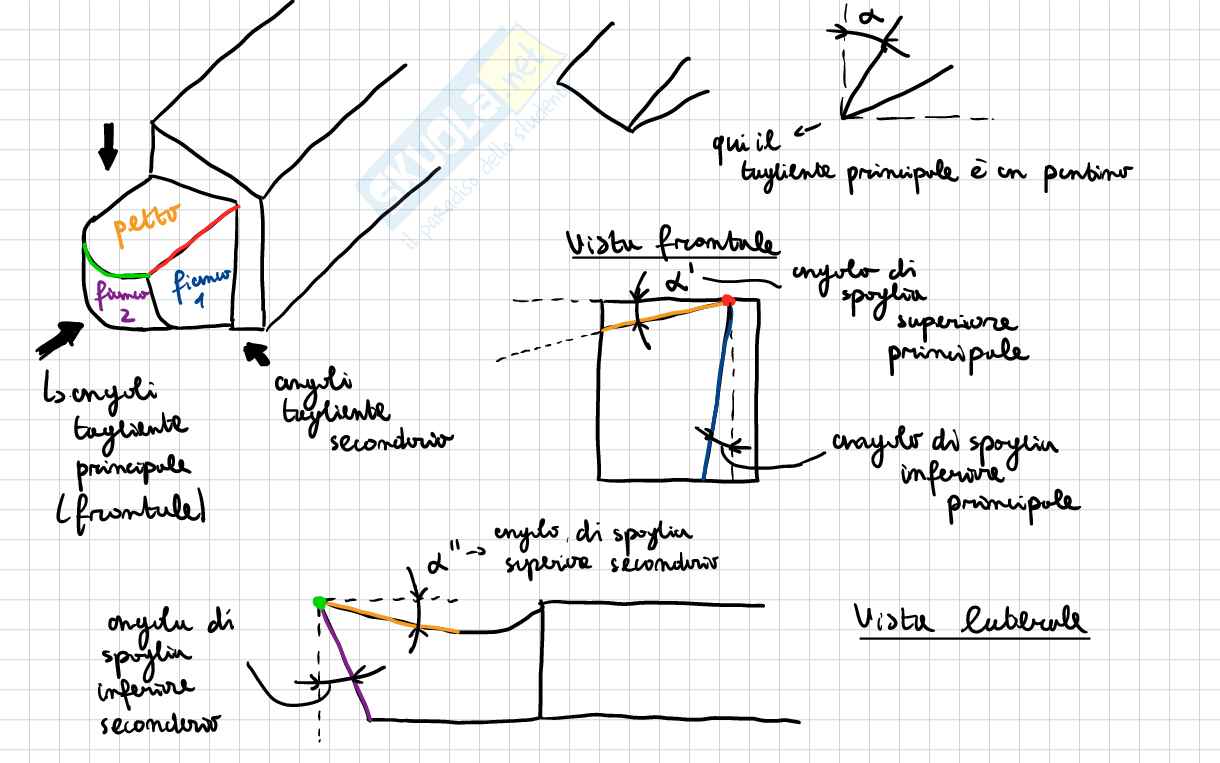 α
qui il
tagliente principale è un puntino
SKUOLA.net
il paradiso dello studente
petto
fianco
1
fianco
2
Vista frontale
α'
angolo di
spoglia
superiore
principale
↳ angoli
tagliente
principale
(frontale)
angoli
tagliente
secondario
anagolo di spoglia
inferiore
principale
α'' → angolo di spoglia
superiore secondario
angolo di
spoglia
inferiore
secondario
Vista laterale